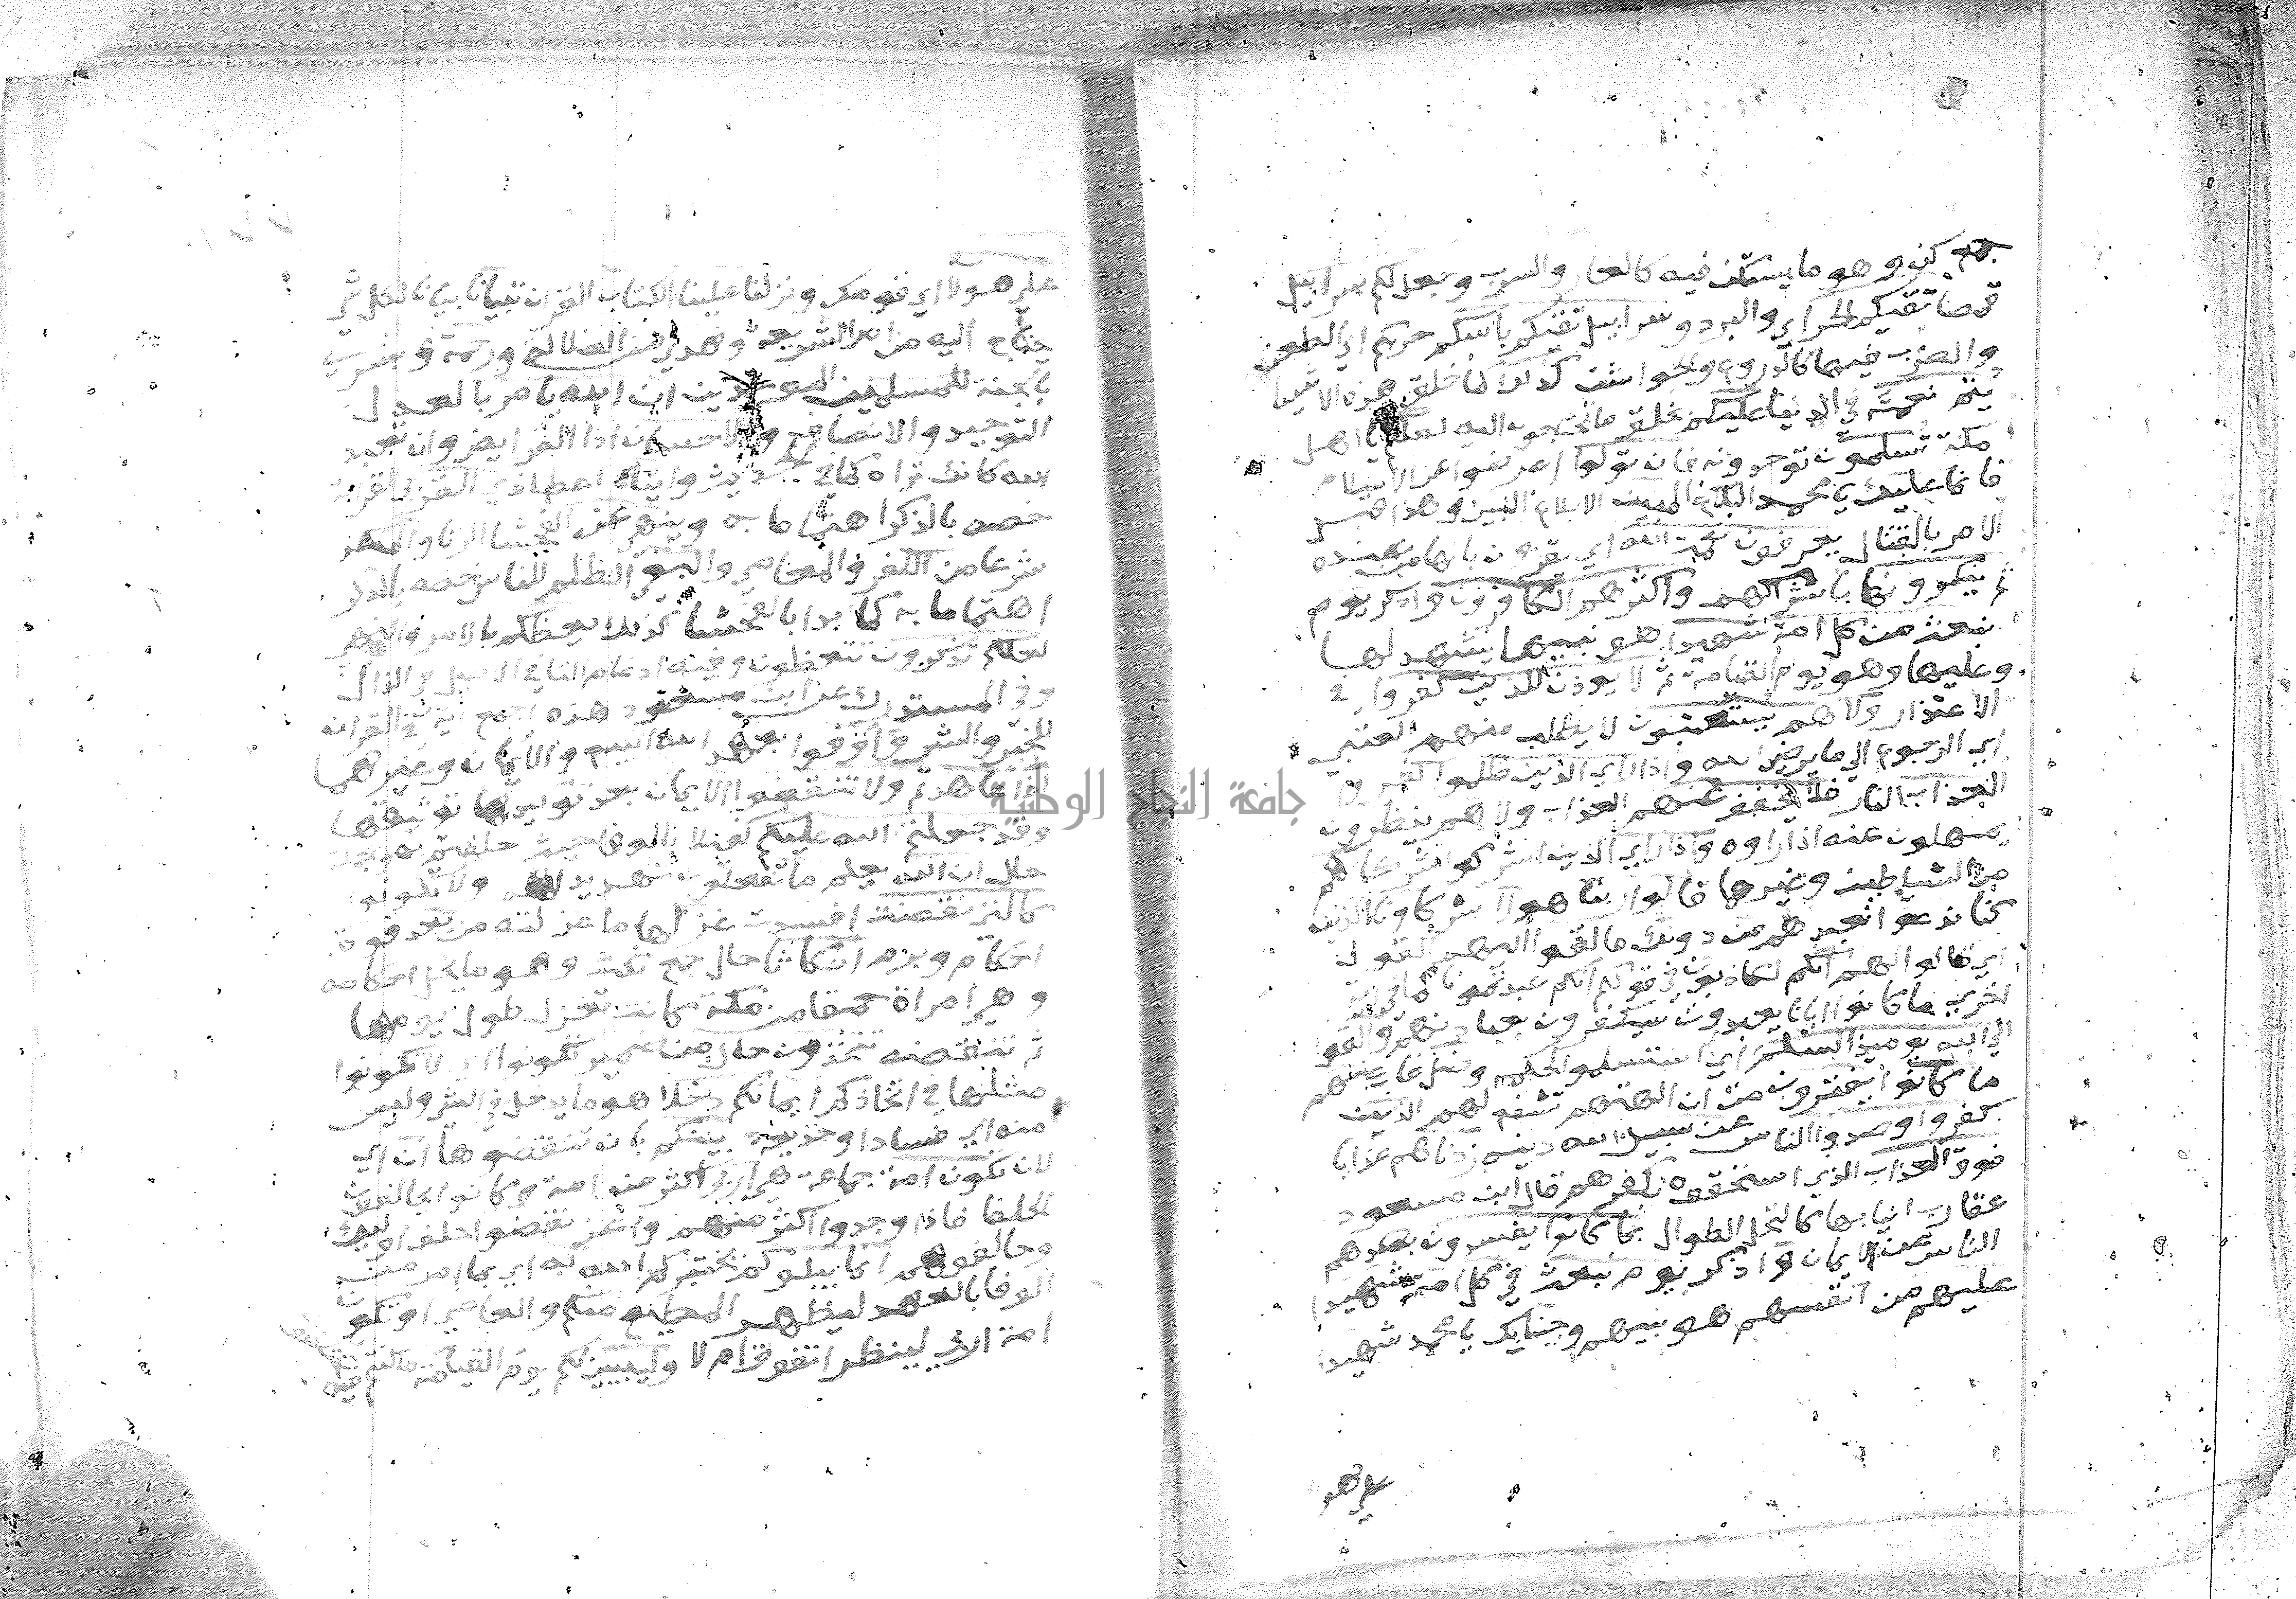 جمع كن وهو ما يستكن فيه كالغار والسرب وجعل لكم سرابيل
قمصا تقيكم الحر اي والبرد وسرابيل تقيكم باسكم حربكم اي الطعن
والضرب فيها كالدروع والجواشن كذلك كما خلق هذه الاشيا
يتم نعمته في الدنيا عليكم بخلق ما تحتاجون اليه لعلكم يا اهل
مكة تسلمون توحدونه فان تولوا اعرضوا عن الاسلام
فانما عليك يا محمد البلاغ المبين الابلاغ البين وهذا قبل
الامر بالقتال يعرفون نعمت الله اي يقرون بانها من عنده
ثم ينكرونها باشراكهم واكثرهم الكافرون واذكر يوم
نبعث من كل امة شهيدا هو نبيها يشهد لها
وعليها وهو يوم القيامة ثم لا يوذن للذين كفروا في
الاعتذار ولا هم يستعتبون لا يطلب منهم العتبي
اي الرجوع الي ما يرضي الله واذا راي الذين ظلموا كفروا
العذاب النار فلا يخفف عنهم العذاب ولا هم ينظرون
يمهلون عنه اذا راوه واذا راي الذين اشركوا شركاهم
من الشياطين وغيرها قالوا ربنا هولا شركاونا الذين
كنا ندعوا نعبدهم من دونك فالقوا اليهم القول
اي قالوا لهم انكم لكاذبون في قولكم انكم عبدتمونا كما في اية
اخري ما كانوا ايانا يعبدون سيكفرون بعبادتهم والقوا
الي الله يوميذ السلم اي استسلموا لحكمه وضل غاب عنهم
ما كانوا يفترون من ان الهتهم تشفع لهم الذين
كفروا وصدوا الناس عن سبيل الله دينه زدناهم عذابا
فوق العذاب الذي استحقوه بكفرهم قال ابن مسعود
عقارب انيابها كالنخل الطوال بما كانوا يفسدون بصدهم
الناس عن الايمان واذكر يوم نبعث في كل امة شهيدا
عليهم من انفسهم هو نبيهم وجينا بك يا محمد شهيدا
علي هو
علي هولا اي قومك ونزلنا علينا الكتاب القران تبيانا بيانا لكل شي
يحتاج اليه من امر الشريعة وهدي من الضلالة ورحمة وبشري
بالجنة للمسلمين الموحدين ان الله يامر بالعدل
التوحيد والانصاف والاحسان ادا الفرايض وان تعبد
الله كانك تراه كما في الحديث وايتاء اعطا ذي القربي القرابة
خصه بالذكر اهتماما به وينهي عن الفحشا الزنا والمنكر
شرعا من الكفر والمعاصي والبغي الظلم للناس خصه بالذكر
اهتماما به كما بدا بالفحشا كذلك يعظكم بالامر والنهي
لعلكم تذكرون تتعظون وفيه ادغام التا في الاصل في الذال
وفي المستدرك عن ابن مسعود هذه اجمع اية في القران
للخير والشر واوفوا بعهد الله البيع والايمان وغيرهما
اذا عاهدتم ولا تنقضوا الايمان بعد توكيدها توثيقها
وقد جعلتم الله عليكم كفيلا بالوفا حيث حلفتم به والجملة
حال ان الله يعلم ما تفعلون تهديد لهم ولا تكونوا
كالتي نقضت افسدت غزلها ما غزلته من بعد قوة
احكام وبرم انكاثا حال جمع نكث وهو ما يحل احكامه
وهي امراة حمقا من مكة كانت تغزل طول يومها
ثم تنقضه تتخذون حال من ضمير تكونوا اي لا تكونوا
مثلها في اتخاذكم ايمانكم دخلا هو ما يدخل في الشي وليس
منه اي فسادا وخديعة بينكم بان تنقضوها ان اي
لان تكون امة جماعة هي اربي اكثر من امة وكانوا يحالفون
الحلفا فاذا وجدوا اكثر منهم واعز نقضوا حلف اوليك
وحالفوهم انما يبلوكم يختبركم الله به اي بما امر من
الوفا بالعهد لينظر المطيع منكم والعاصي او تكون
امة اربي لينظر اتفون ام لا وليبينن لكم يوم القيامة ما كنتم فيه
جامعة النجاح الوطنية